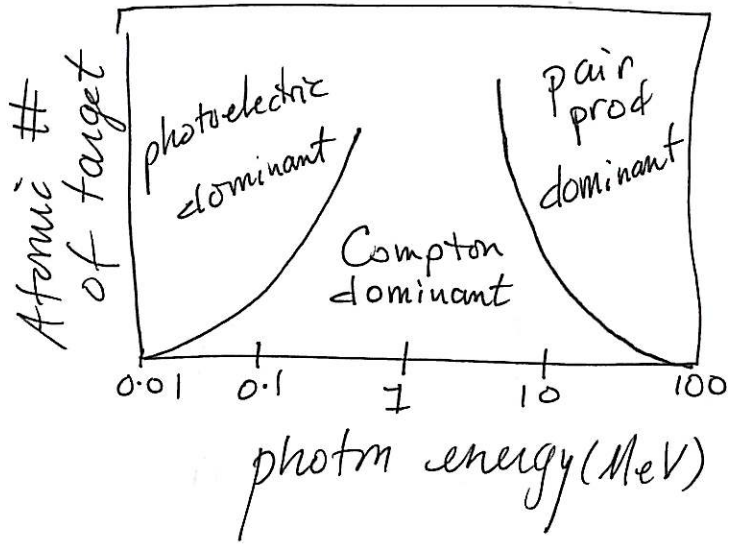 Atomic #
of target
photoelectric
dominant
Compton
dominant
pair
prod
dominant
0.01 0.1 1 10 100
photon energy (MeV)